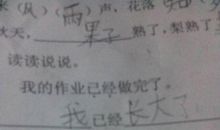 (风)(雨)声,花落
天, 果子 熟了,梨熟了
读读说说。
我的作业已经做完了。
我已经长大了